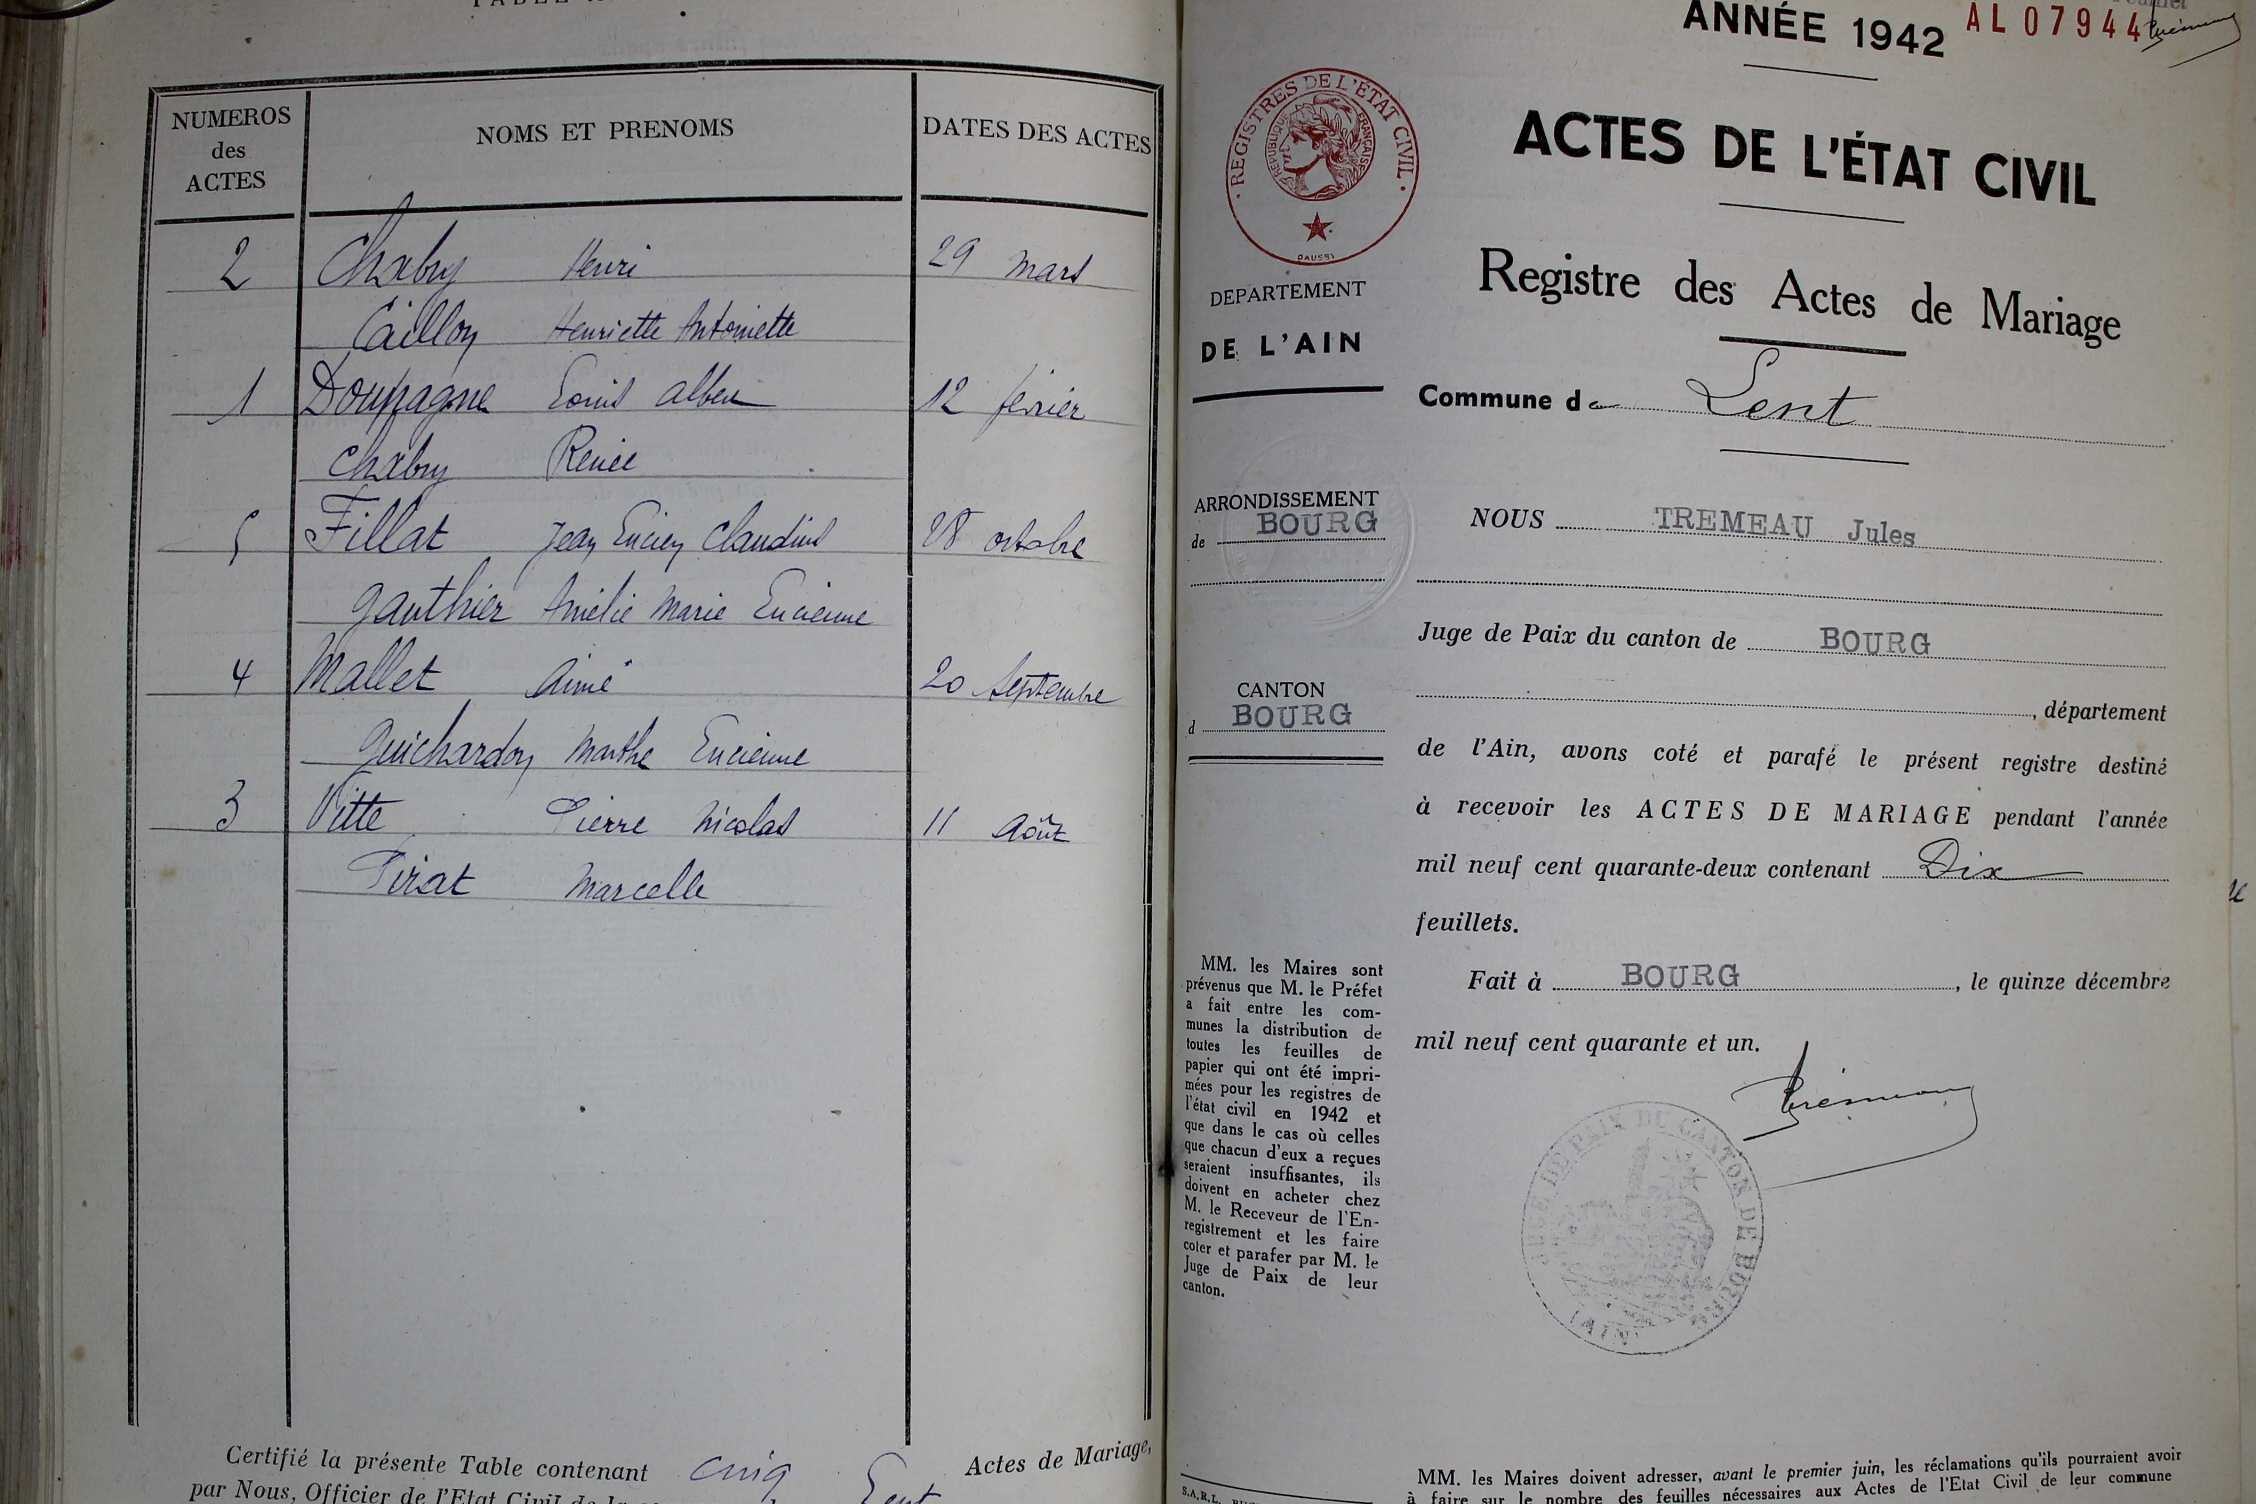 NUMEROS
des
ACTES
NOMS ET PRENOMS
DATES DES ACTES
2 Chabry Henri 29 mars
Caillon Henriette Antoinette
1 Doupagne Louis Albert 12 février
Chabry Renée
5 Fillat Jean Lucien Claudius 28 octobre
Gauthier Amélie Marie Lucienne
4 Mallet Aimé 20 Septembre
Guichardon Marthe Lucienne
3 Vitte Pierre Nicolas 11 Août
Pirat Marcelle
Certifié la présente Table contenant cinq Actes de Mariage,
par Nous, Officier de l'Etat Civil de la Lent
ANNÉE 1942 AL 07944
REGISTRES DE L'ÉTAT CIVIL
RÉPUBLIQUE FRANÇAISE
DEPARTEMENT
DE L'AIN
ARRONDISSEMENT
de BOURG
CANTON
d BOURG
MM. les Maires sont
prévenus que M. le Préfet
a fait entre les com-
munes la distribution de
toutes les feuilles de
papier qui ont été impri-
mées pour les registres de
l'état civil en 1942 et
que dans le cas où celles
que chacun d'eux a reçues
seraient insuffisantes, ils
doivent en acheter chez
M. le Receveur de l'En-
registrement et les faire
coter et parafer par M. le
Juge de Paix de leur
canton.
S.A.R.L.
ACTES DE L'ÉTAT CIVIL
Registre des Actes de Mariage
Commune de Lent
NOUS TREMEAU Jules
Juge de Paix du canton de BOURG
, département
de l'Ain, avons coté et parafé le présent registre destiné
à recevoir les ACTES DE MARIAGE pendant l'année
mil neuf cent quarante-deux contenant Dix
feuillets.
Fait à BOURG, le quinze décembre
mil neuf cent quarante et un.
Trémeau
JUGE DE PAIX DU CANTON DE BOURG
(AIN)
MM. les Maires doivent adresser, avant le premier juin, les réclamations qu'ils pourraient avoir
à faire sur le nombre des feuilles nécessaires aux Actes de l'Etat Civil de leur commune